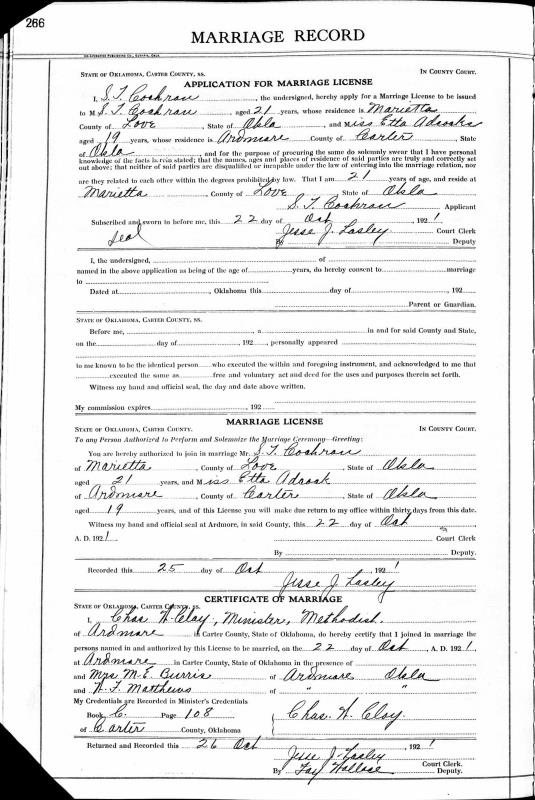 266
MARRIAGE RECORD
STATE OF OKLAHOMA, CARTER COUNTY, SS. IN COUNTY COURT.
APPLICATION FOR MARRIAGE LICENSE
I, S. T. Cochran, the undersigned, hereby apply for a Marriage License to be issued
to M S. T. Cochran, aged 21 years, whose residence is Marietta
County of Love, State of Okla, and Miss Etta
aged 19 years, whose residence is Ardmore County of Carter, State
of Okla, and for the purpose of procuring the same do solemnly swear that I have personal
knowledge of the facts herein stated; that the names, ages and places of residence of said parties are truly and correctly set
out above; that neither of said parties are disqualified or incapable under the law of entering into the marriage relation, nor
are they related to each other within the degrees prohibited by law. That I am 21 years of age, and reside at
Marietta, County of Love State of Okla
S. T. Cochran Applicant
Subscribed and sworn to before me, this 22 day of Oct, 1921
Seal Jesse J. Lasley Court Clerk
By Deputy
I, the undersigned, of
named in the above application as being of the age of years, do hereby consent to marriage
to
Dated at , Oklahoma this day of , 192
Parent or Guardian.
STATE OF OKLAHOMA, CARTER COUNTY, SS.
Before me, , a in and for said County and State,
on the day of , 192 , personally appeared
to me known to be the identical person who executed the within and foregoing instrument, and acknowledged to me that
executed the same as free and voluntary act and deed for the uses and purposes therein set forth.
Witness my hand and official seal, the day and date above written.
My commission expires , 192
MARRIAGE LICENSE
STATE OF OKLAHOMA, CARTER COUNTY. IN COUNTY COURT.
To any Person Authorized to Perform and Solemnize the Marriage Ceremony—Greeting:
You are hereby authorized to join in marriage Mr. S. T. Cochran
of Marietta, County of Love, State of Okla
aged 21 years, and Miss Etta
of Ardmore, County of Carter, State of Okla
aged 19 years, and of this License you will make due return to my office within thirty days from this date.
Witness my hand and official seal at Ardmore, in said County, this 22 day of Oct
A. D. 1921 Court Clerk
By Deputy.
Recorded this 25 day of Oct, 1921
Jesse J. Lasley
CERTIFICATE OF MARRIAGE
STATE OF OKLAHOMA, CARTER COUNTY, ss.
I, Chas. Cloy, Minister, Methodist.
of Ardmore in Carter County, State of Oklahoma, do hereby certify that I joined in marriage the
persons named in and authorized by this License to be married, on the 22 day of Oct A. D. 1921
at Ardmore in Carter County, State of Oklahoma in the presence of
and Mrs M. E. Currie of Ardmore Okla
and Matthews of " "
My Credentials are Recorded in Minister's Credentials
Book C. Page 108 Chas. Cloy.
of Carter County, Oklahoma
Returned and Recorded this 26 Oct, 1921
Jesse J. Lasley Court Clerk.
By Fay Wallace Deputy.